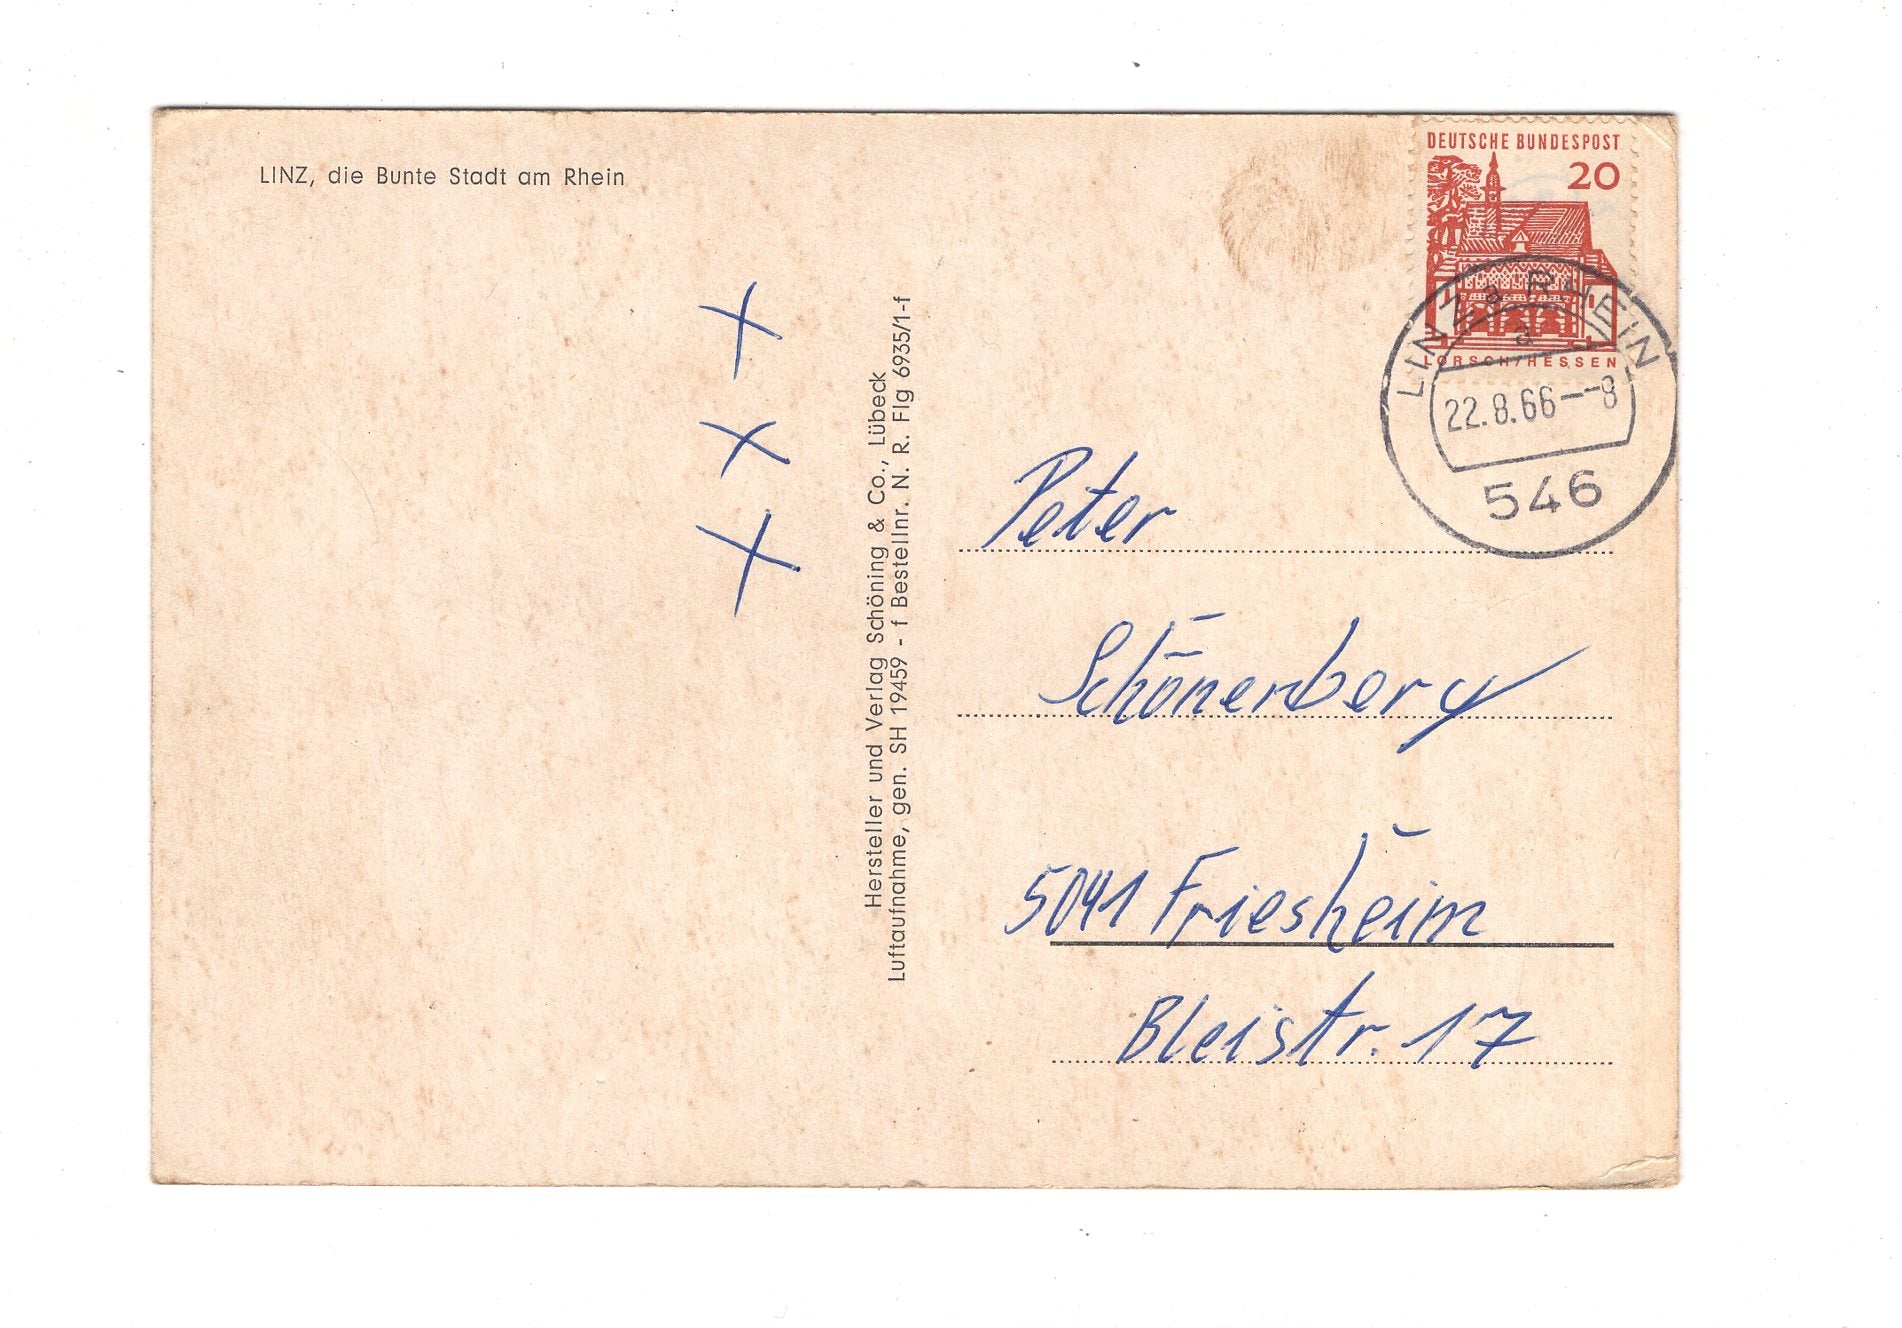 LINZ, die Bunte Stadt am Rhein
X
X
X
Hersteller und Verlag Schöning & Co., Lübeck
Luftaufnahme, gen. SH 19459 - f Bestellnr. N. R. Flg 6935/1-f
DEUTSCHE BUNDESPOST
20
LORSCH/HESSEN
LINZ a RHEIN
a
22.8.66--8
546
Peter
Schönenberg
5041 Friesheim
Bleistr. 17